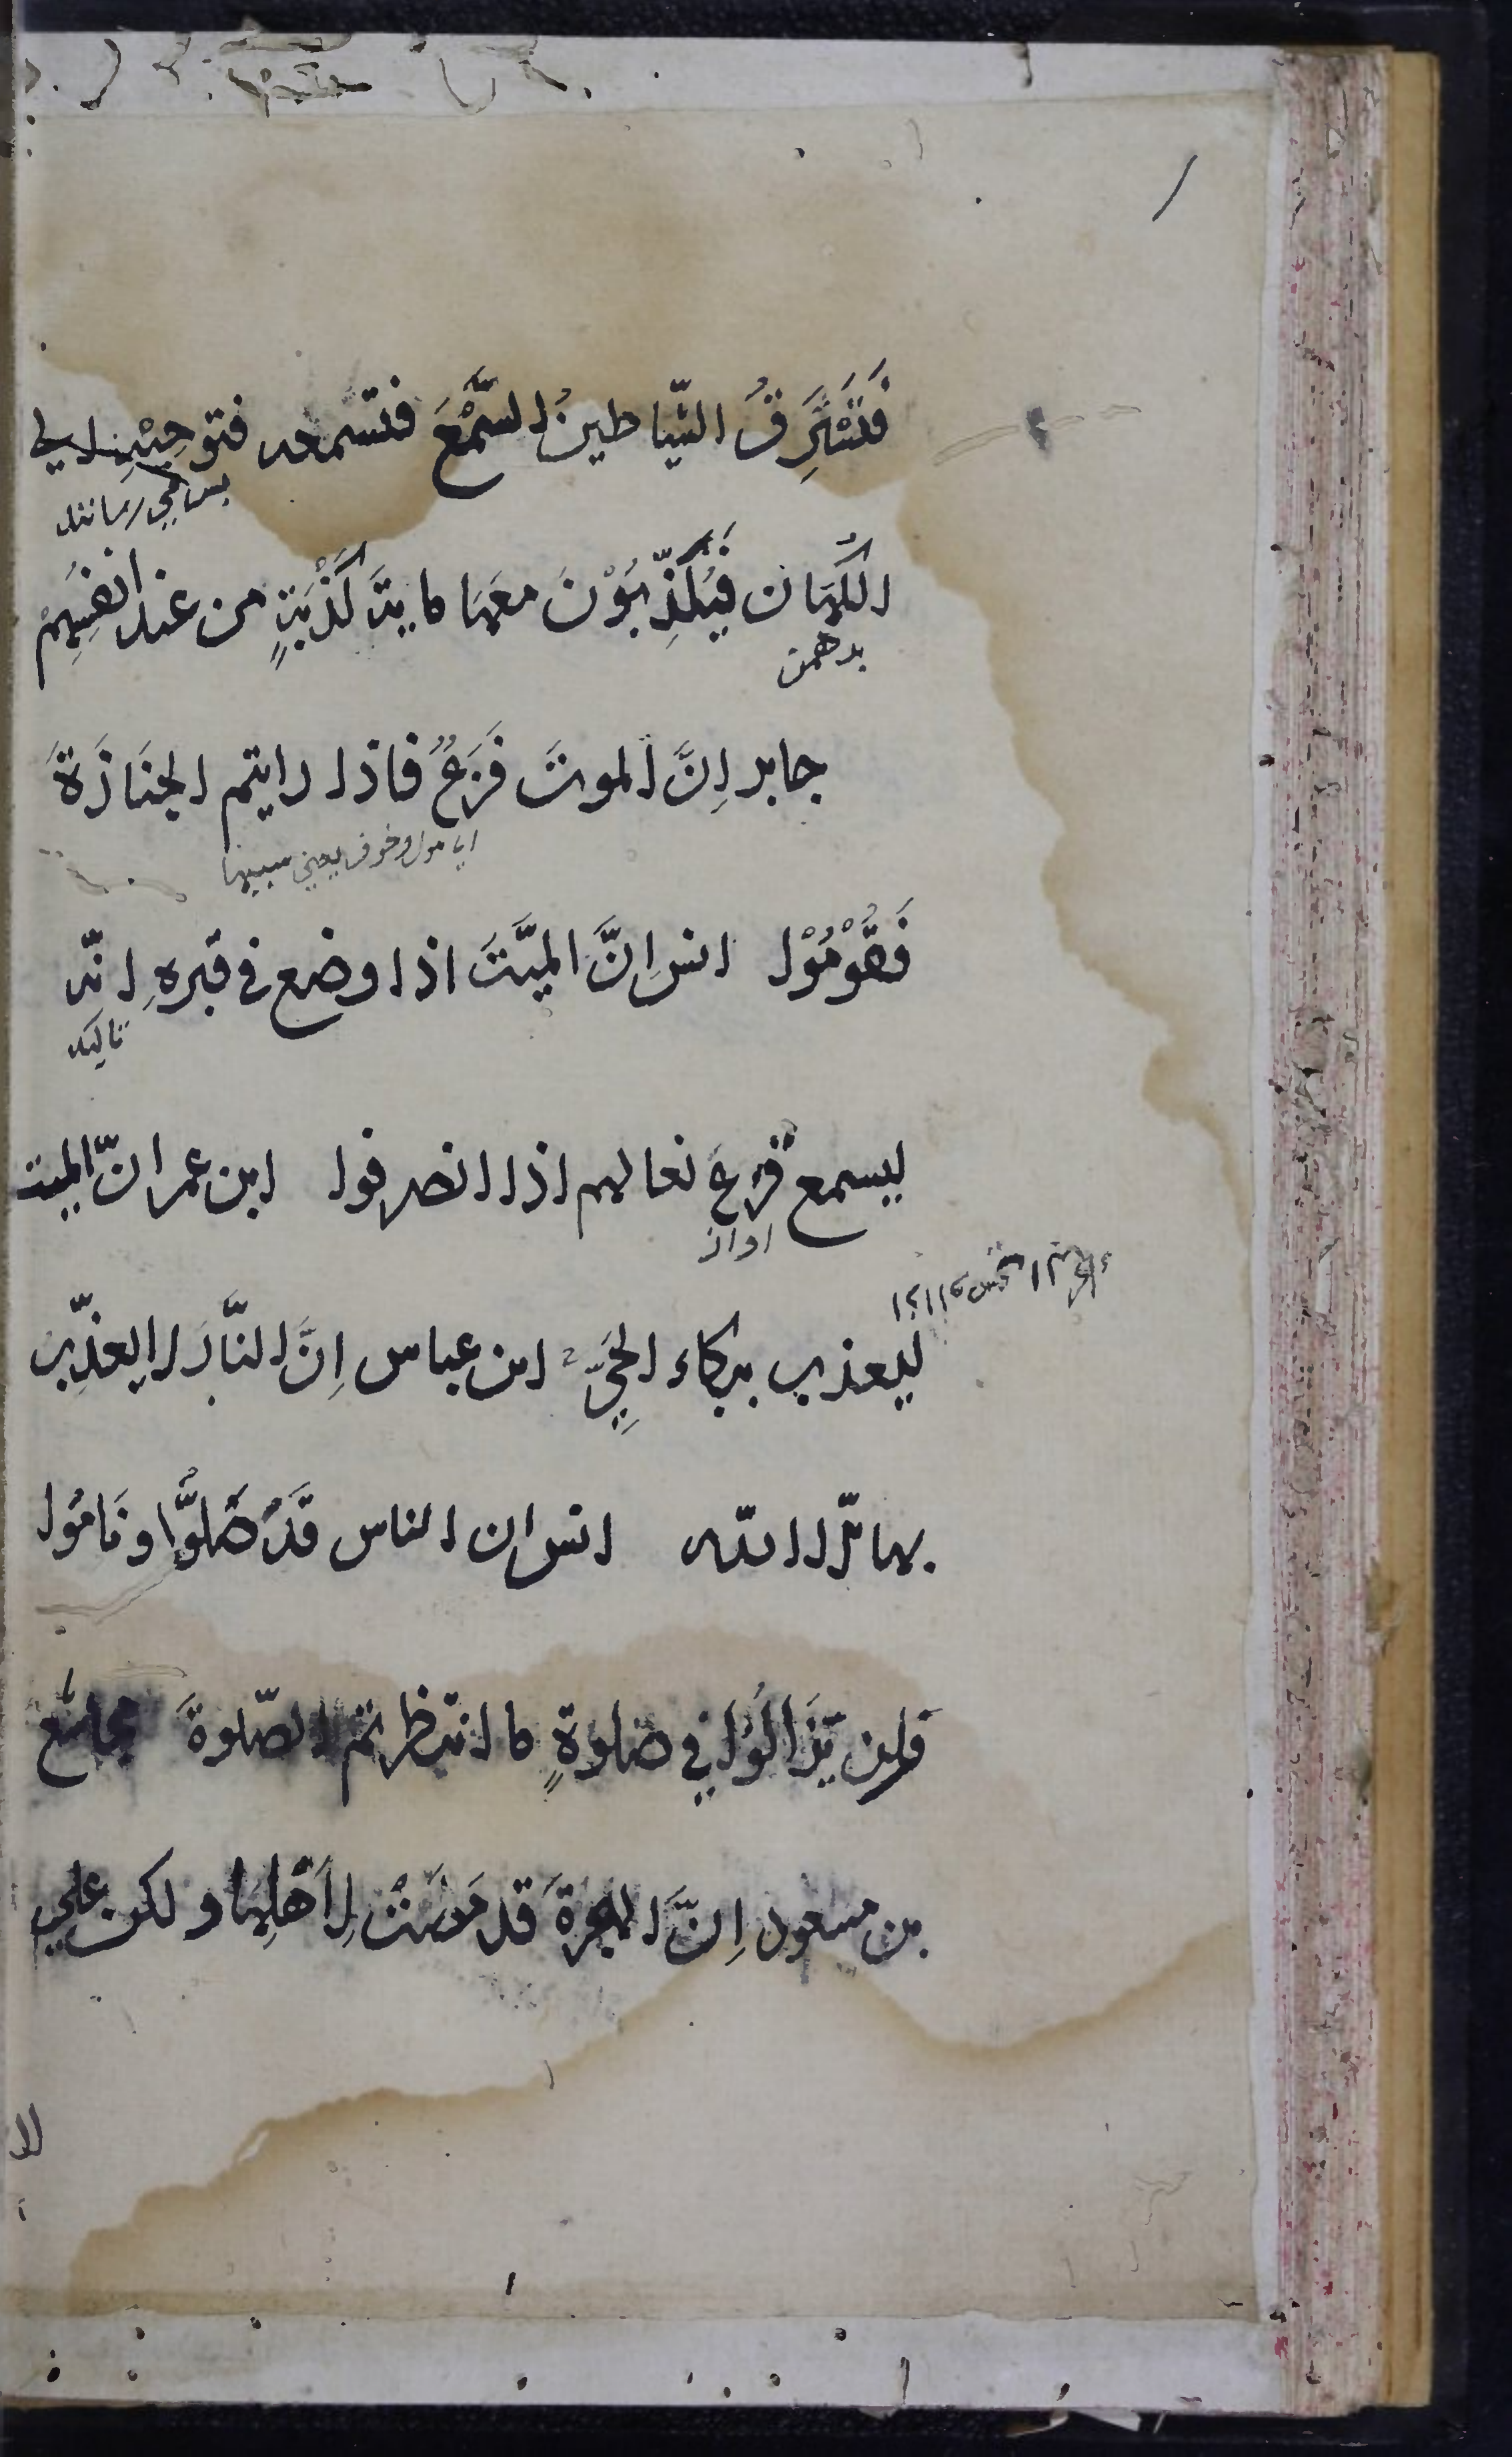 فَتَسْتَرِقُ الشّياطينُ السَّمْعَ فتسمعه فتوحيْهِ الي
پس مي رسانند
الكُهّان فَيُكَذِّبُوْنَ معَها مايةَ كَذْبَةٍ من عند انفسِهِمْ
جابر اِنَّ الموتَ فَزَعٌ فاذا رايتم الجَنَازَةَ
اي هول و خوف يعني
فَقُوْمُوْا انس اِنَّ الميّتَ اذا وضع في قبرهِ انّه
تاكيد
ليسمع قرعَ نعالهم اذا انصرفوا ابن عمر انّ الميت
اواز
ليعذب ببكاء الحَيِّ ابن عباس اِنَّ النَّارَ لا يعذِّب
بها الّا الله انس ان الناس قَدْ صَلَّوُا و نَامُوا
فلن يَزَالُوا في صلوةٍ ما انتظرتم الصّلوةَ مجاشع
بن مسعود اِنَّ الهجرةَ قد مَضَتْ لِاَهْلِهَا و لكن علي